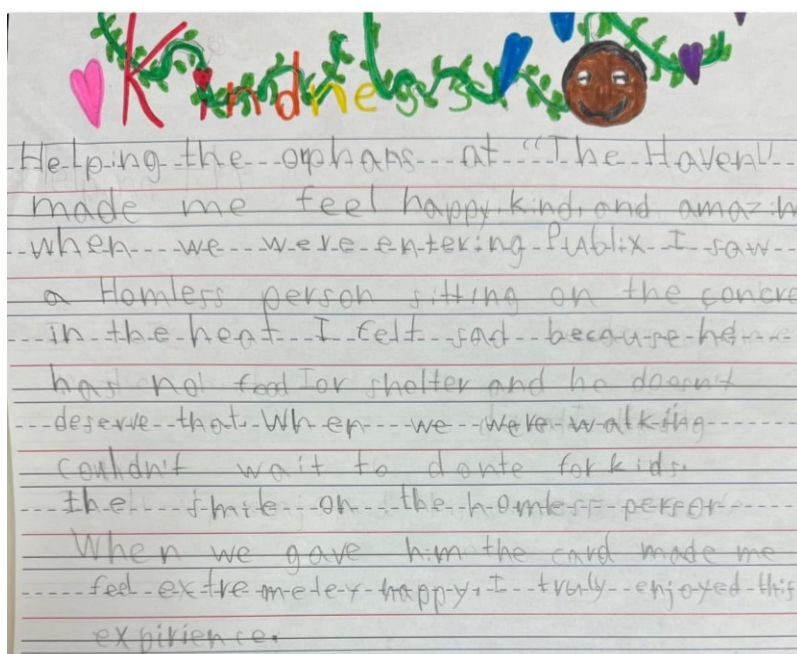 Kindness
Helping the orphans at "The Haven"
made me feel happy, kind, and amazin
when we were entering Publix I saw
a Homless person sitting on the concre
in the heat I felt sad because he
has not food or shelter and he doesn't
deserve that. When we were walking
couldn't wait to donte for kids.
the smile on the homless person
When we gave him the card made me
feel extremeley happy, I truly enjoyed this
expirience.